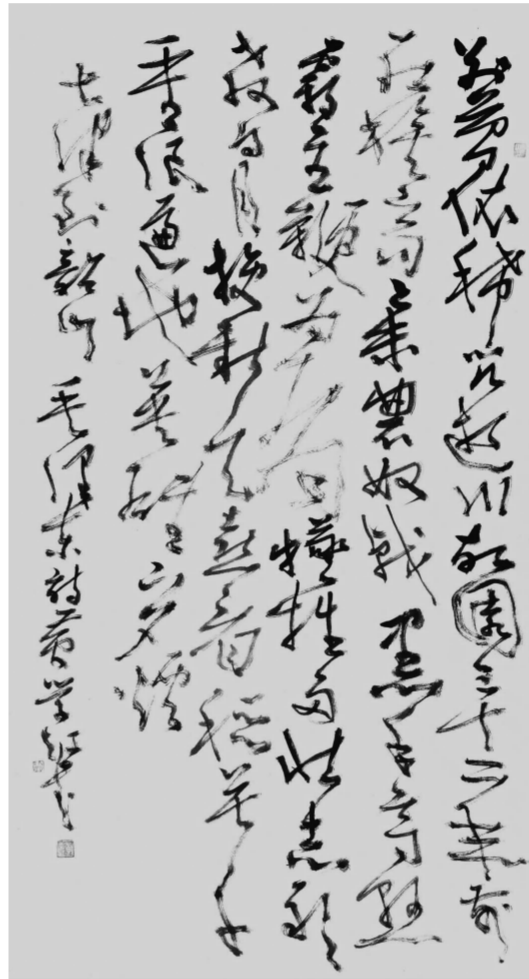 别夢依稀咒逝川故園三十二年前
红旗卷起農奴戟黑手高懸
霸主鞭为有犧牲多壮志敢
教日月换新天喜看稻菽千
重浪遍地英雄下夕煙
律到韶山 毛泽东诗黄学书